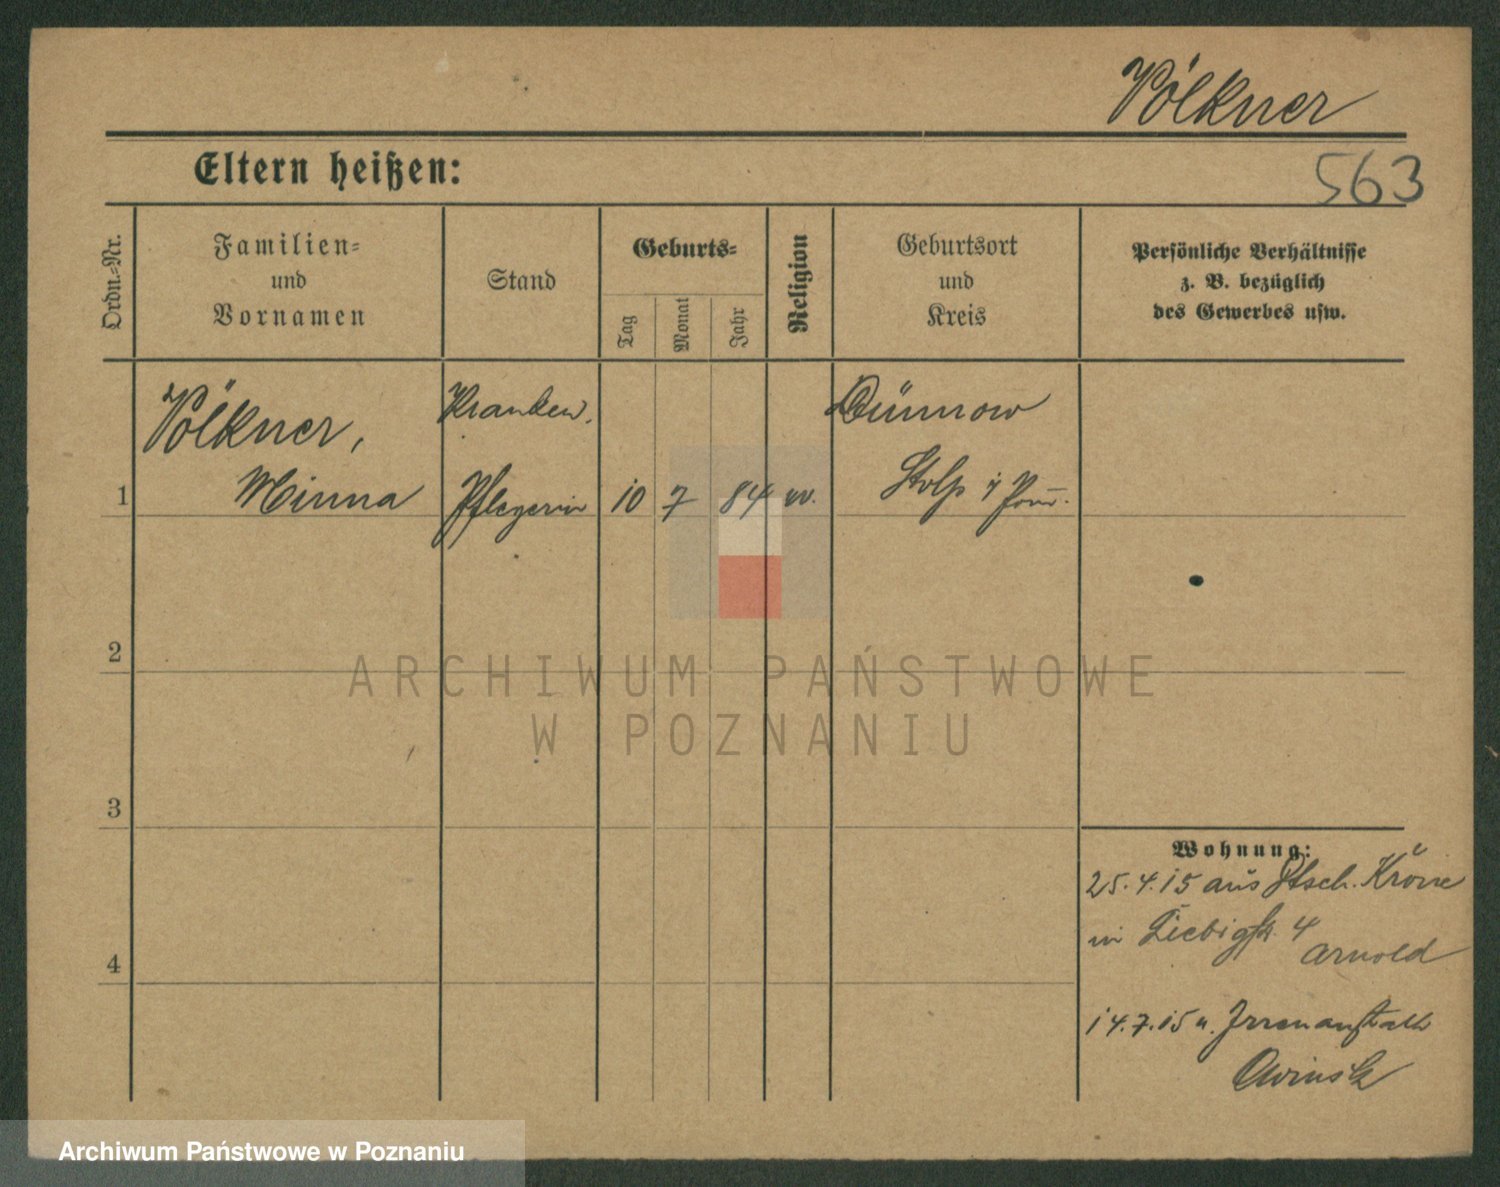 Völkner
Eltern heißen:
563
Ordn.=Nr.
Familien=
und
Vornamen
Stand
Geburts=
Tag
Monat
Jahr
Religion
Geburtsort
und
Kreis
Persönliche Verhältnisse
z. B. bezüglich
des Gewerbes usw.
Völkner,
Minna
Kranken.
Pflegerin
1
10
7
84
Dünnow
Stolp i/ Pom.
2
3
4
Wohnung:
25.4.15 aus Dtsch. Krone
in Liebigstr. 4
Arnold
14.7.15 n. Irrenanstalt
Owinsk
ARCHIWUM PAŃSTWOWE
W POZNANIU
Archiwum Państwowe w Poznaniu